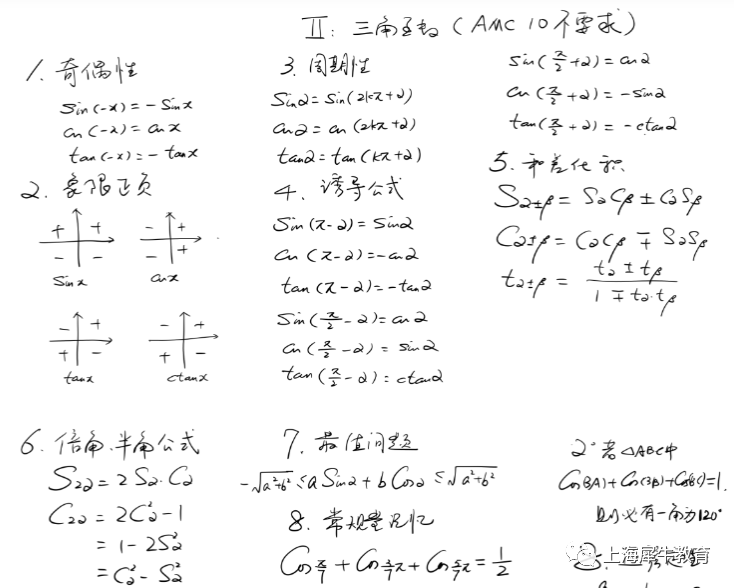 II: 三角函数 (AMC 10 不要求)
1. 奇偶性
sin(-x) = -sinx
cos(-x) = cosx
tan(-x) = -tanx
2. 象限正负
+ +
- -
sinx
- +
- +
cosx
- +
+ -
tanx
- +
+ -
ctanx
3. 周期性
sinα = sin(2kπ+α)
cosα = cos(2kπ+α)
tanα = tan(kπ+α)
4. 诱导公式
sin(π-α) = sinα
cos(π-α) = -cosα
tan(π-α) = -tanα
sin(π/2-α) = cosα
cos(π/2-α) = sinα
tan(π/2-α) = ctanα
sin(π/2+α) = cosα
cos(π/2+α) = -sinα
tan(π/2+α) = -ctanα
5. 和差化积
Sα±β = SαCβ ± CαSβ
Cα±β = CαCβ ∓ SαSβ
tα±β = (tα ± tβ)/(1 ∓ tα·tβ)
6. 倍角.半角公式
S2α = 2Sα·Cα
C2α = 2C²α-1
= 1-2S²α
= C²α-S²α
7. 最值问题
-√(a²+b²) ≤ a Sinα + b Cosα ≤ √(a²+b²)
8. 常规量记忆
Cos π/7 + Cos 3/7π + Cos 5/7π = 1/2
2° 若△ABC中
Cos(3A)+Cos(3B)+Cos(3C)=1.
则必有一角为120°
上海犀牛教育